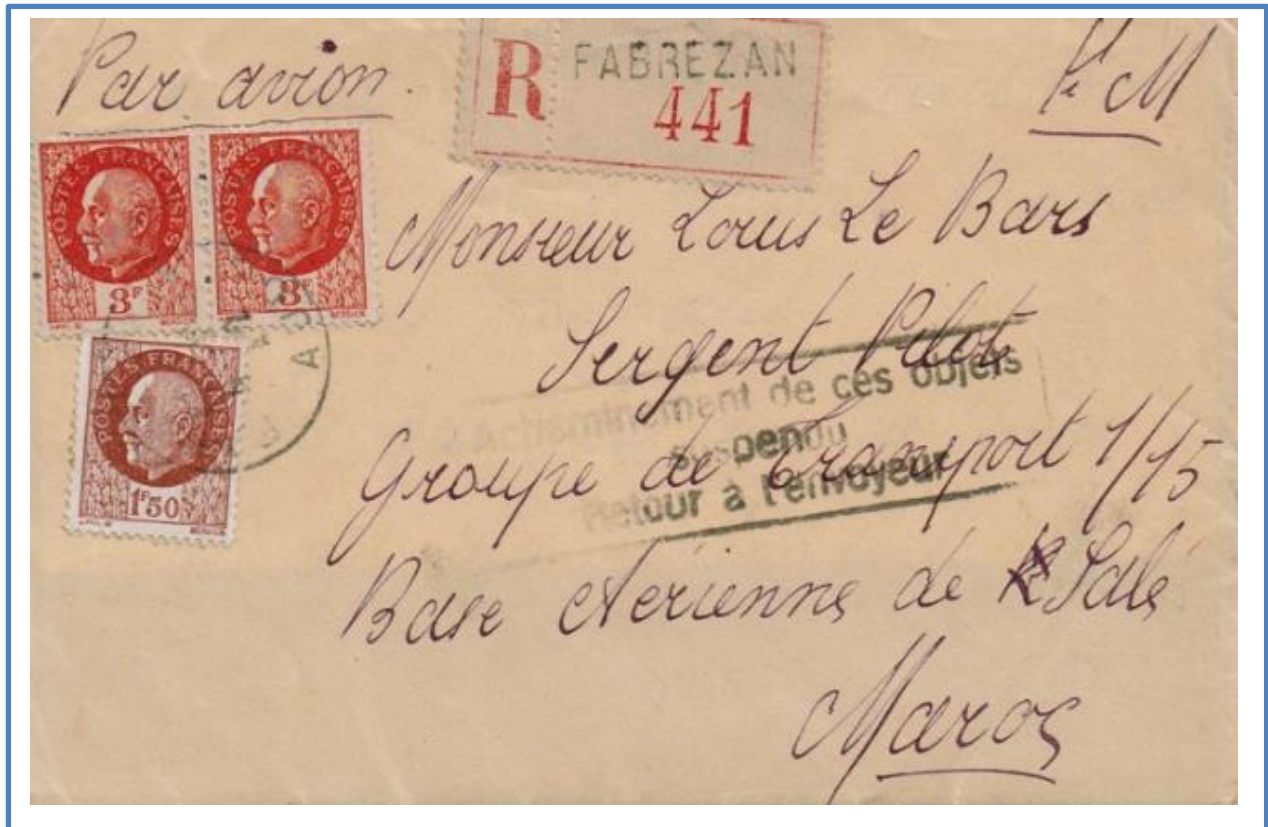 Par avion.
R FABREZAN
441
F. M
POSTES FRANÇAISES
3F
POSTES FRANÇAISES
3F
POSTES FRANÇAISES
1F50
Monsieur Louis Le Bars
Sergent Pilote
L'Acheminement de ces objets
suspendu
Retour à l'envoyeur
Groupe de Transport 1/15
Base Aérienne de Salé
Maroc